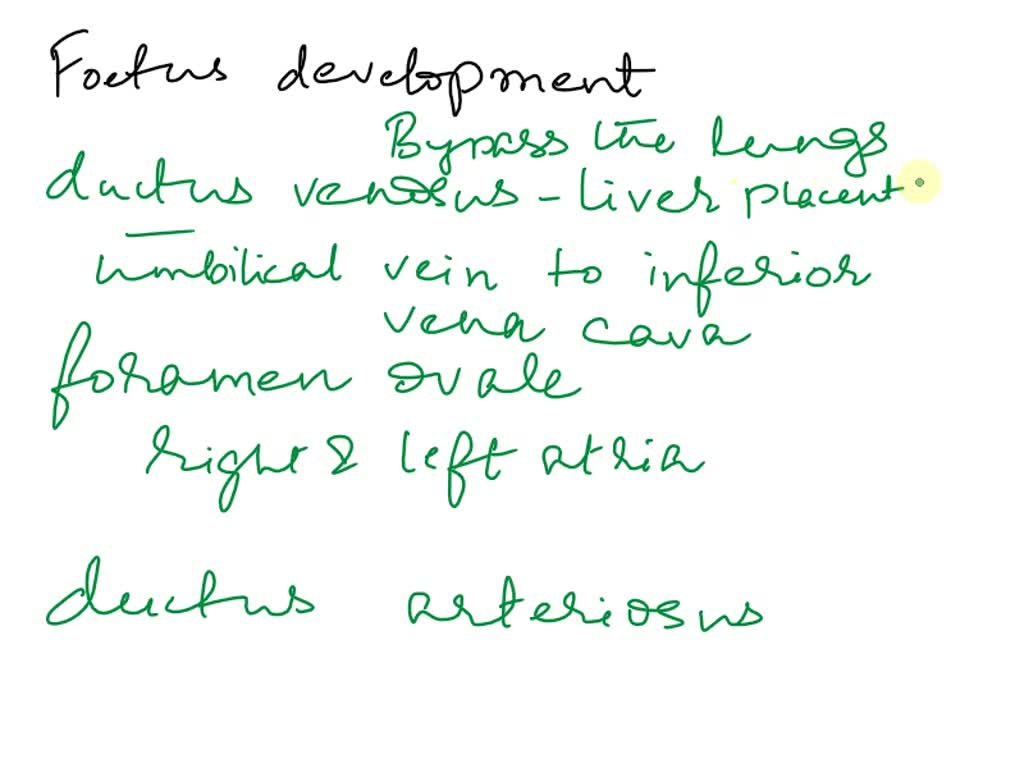 Foetus development
Bypass the lungs
ductus venosus - liver placent
umbilical vein to inferior
vena cava
foramen ovale
right & left atria
ductus arteriosus